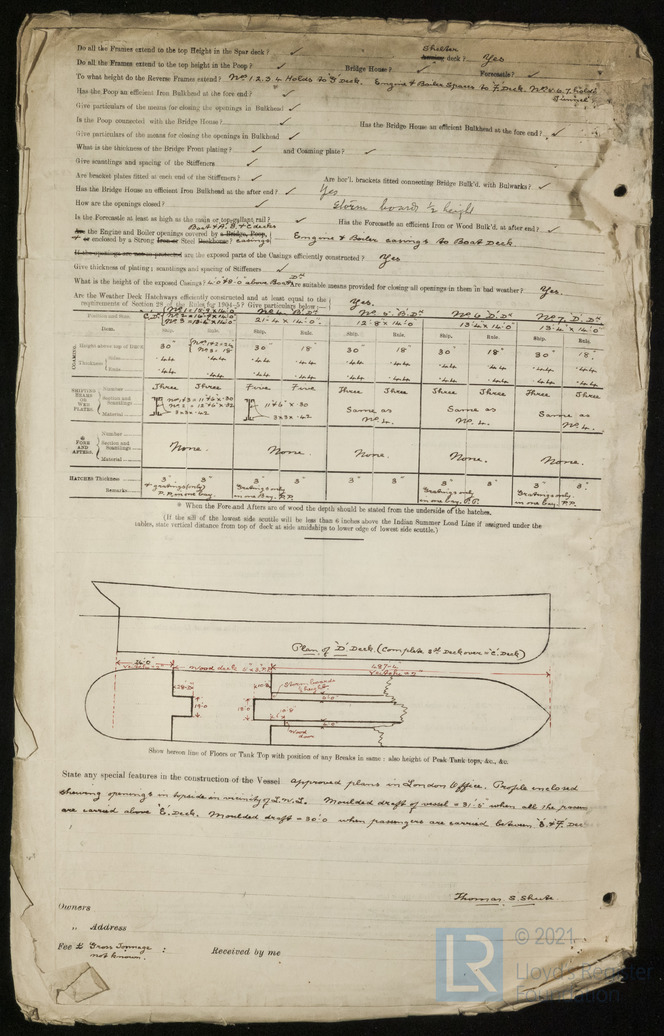 Do all the Frames extend to the top Height in the Spar deck? ✓ Shelter Awning deck? Yes
Do all the Frames extend to the top height in the Poop? ✓ Bridge House? ✓ Forecastle? ✓
To what height do the Reverse Frames extend? Nos. 1.2.3.4 Holds to 'G' Deck. Engine & Boiler Spaces to F. Deck. Nos.
Has the Poop an efficient Iron Bulkhead at the fore end? ✓
Give particulars of the means for closing the openings in Bulkhead ✓
Is the Poop connected with the Bridge House? ✓ Has the Bridge House an efficient Bulkhead at the fore end? ✓
Give particulars of the means for closing the openings in Bulkhead ✓
What is the thickness of the Bridge Front plating? ✓ and Coaming plate? ✓
Give scantlings and spacing of the Stiffeners ✓
Are bracket plates fitted at each end of the Stiffeners? ✓ Are hor'l. brackets fitted connecting Bridge Bulk'd. with Bulwarks? ✓
Has the Bridge House an efficient Iron Bulkhead at the after end? ✓ Yes
How are the openings closed? ✓ Storm boards ½ height
Is the Forecastle at least as high as the main or top-gallant rail? ✓ Has the Forecastle an efficient Iron or Wood Bulk'd. at after end? ✓
Boat & A, B, & C decks
Are the Engine and Boiler openings covered by a Bridge, Poop,
or enclosed by a Strong Iron or Steel Deckhouse? casings Engine & Boiler casings to Boat Deck.
If the openings are not so protected are the exposed parts of the Casings efficiently constructed? Yes
Give thickness of plating; scantlings and spacing of Stiffeners ✓
What is the height of the exposed Casings? above Boat Dk Are suitable means provided for closing all openings in them in bad weather? Yes.
Are the Weather Deck Hatchways efficiently constructed and at least equal to the
requirements of Section 29 of the Rules for 1904-5? Give particulars below:— Yes.
Position and Size.
21·4 x 14·0 12·8 x 14·0 13·4 x 14·0 13·4 x 14·0
Item. Ship. Rule. Ship. Rule. Ship. Rule. Ship. Rule. Ship. Rule.
COAMING. Height above top of Deck 30" 30" 18" 30" 18" 30" 18" 30" 18"
Thickness Sides ·44 ·44 ·44 ·44 ·44 ·44 ·44 ·44 ·44 ·44
Ends ·44 ·44 ·44 ·44 ·44 ·44 ·44 ·44 ·44 ·44
SHIFTING BEAMS OR WEB PLATES. Number Three Three Five Five Three Three Three Three Three Three
Section and Scantlings Same as No. 4. Same as No. 4. Same as No. 4.
Material 3x3x·42 3x3x·42
FORE AND AFTERS. Number
Section and Scantlings None. None. None. None. None.
Material
HATCHES Thickness 3" 3" 3" 3" 3" 3" 3" 3" 3" 3"
Remarks + gratings (only) P.P. in one bay. Gratings only in one Bay. P.P. Gratings only in one bay. P.P. Gratings only in one bay. P.P.
* When the Fore and Afters are of wood the depth should be stated from the underside of the hatches.
(If the sill of the lowest side scuttle will be less than 6 inches above the Indian Summer Load Line if assigned under the
tables, state vertical distance from top of deck at side amidships to lower edge of lowest side scuttle.)
Plan of 'D' Deck. (Complete 3rd Deck over = 'C' Deck)
Wood deck
Storm boards ½ height
Wood door
Show hereon line of Floors or Tank Top with position of any Breaks in same: also height of Peak Tank tops, &c., &c.
State any special features in the construction of the Vessel Approved plans in London Office. Profile enclosed
shewing openings in topside in vicinity of L.W.L. Moulded draft of vessel = 31·5" when all the passen
are carried above 'E' Deck. Moulded draft = 30·0 when passengers are carried between 'E' & 'F' Dec
Thomas S. Shute.
Owners
„ Address
Fee £ Gross Tonnage not known. : Received by me
LR
© 2021
Lloyd's Register
Foundation